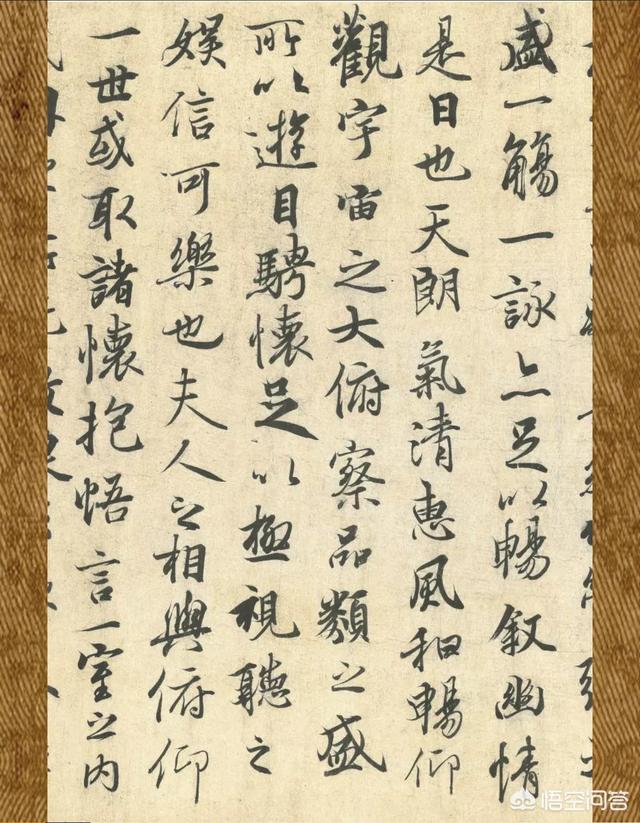 盛一觴一詠亦足以暢敘幽情
是日也天朗氣清惠風和暢仰
觀宇宙之大俯察品類之盛
所以遊目騁懷足以極視聽之
娛信可樂也夫人之相與俯仰
一世或取諸懷抱悟言一室之內
悟空问答